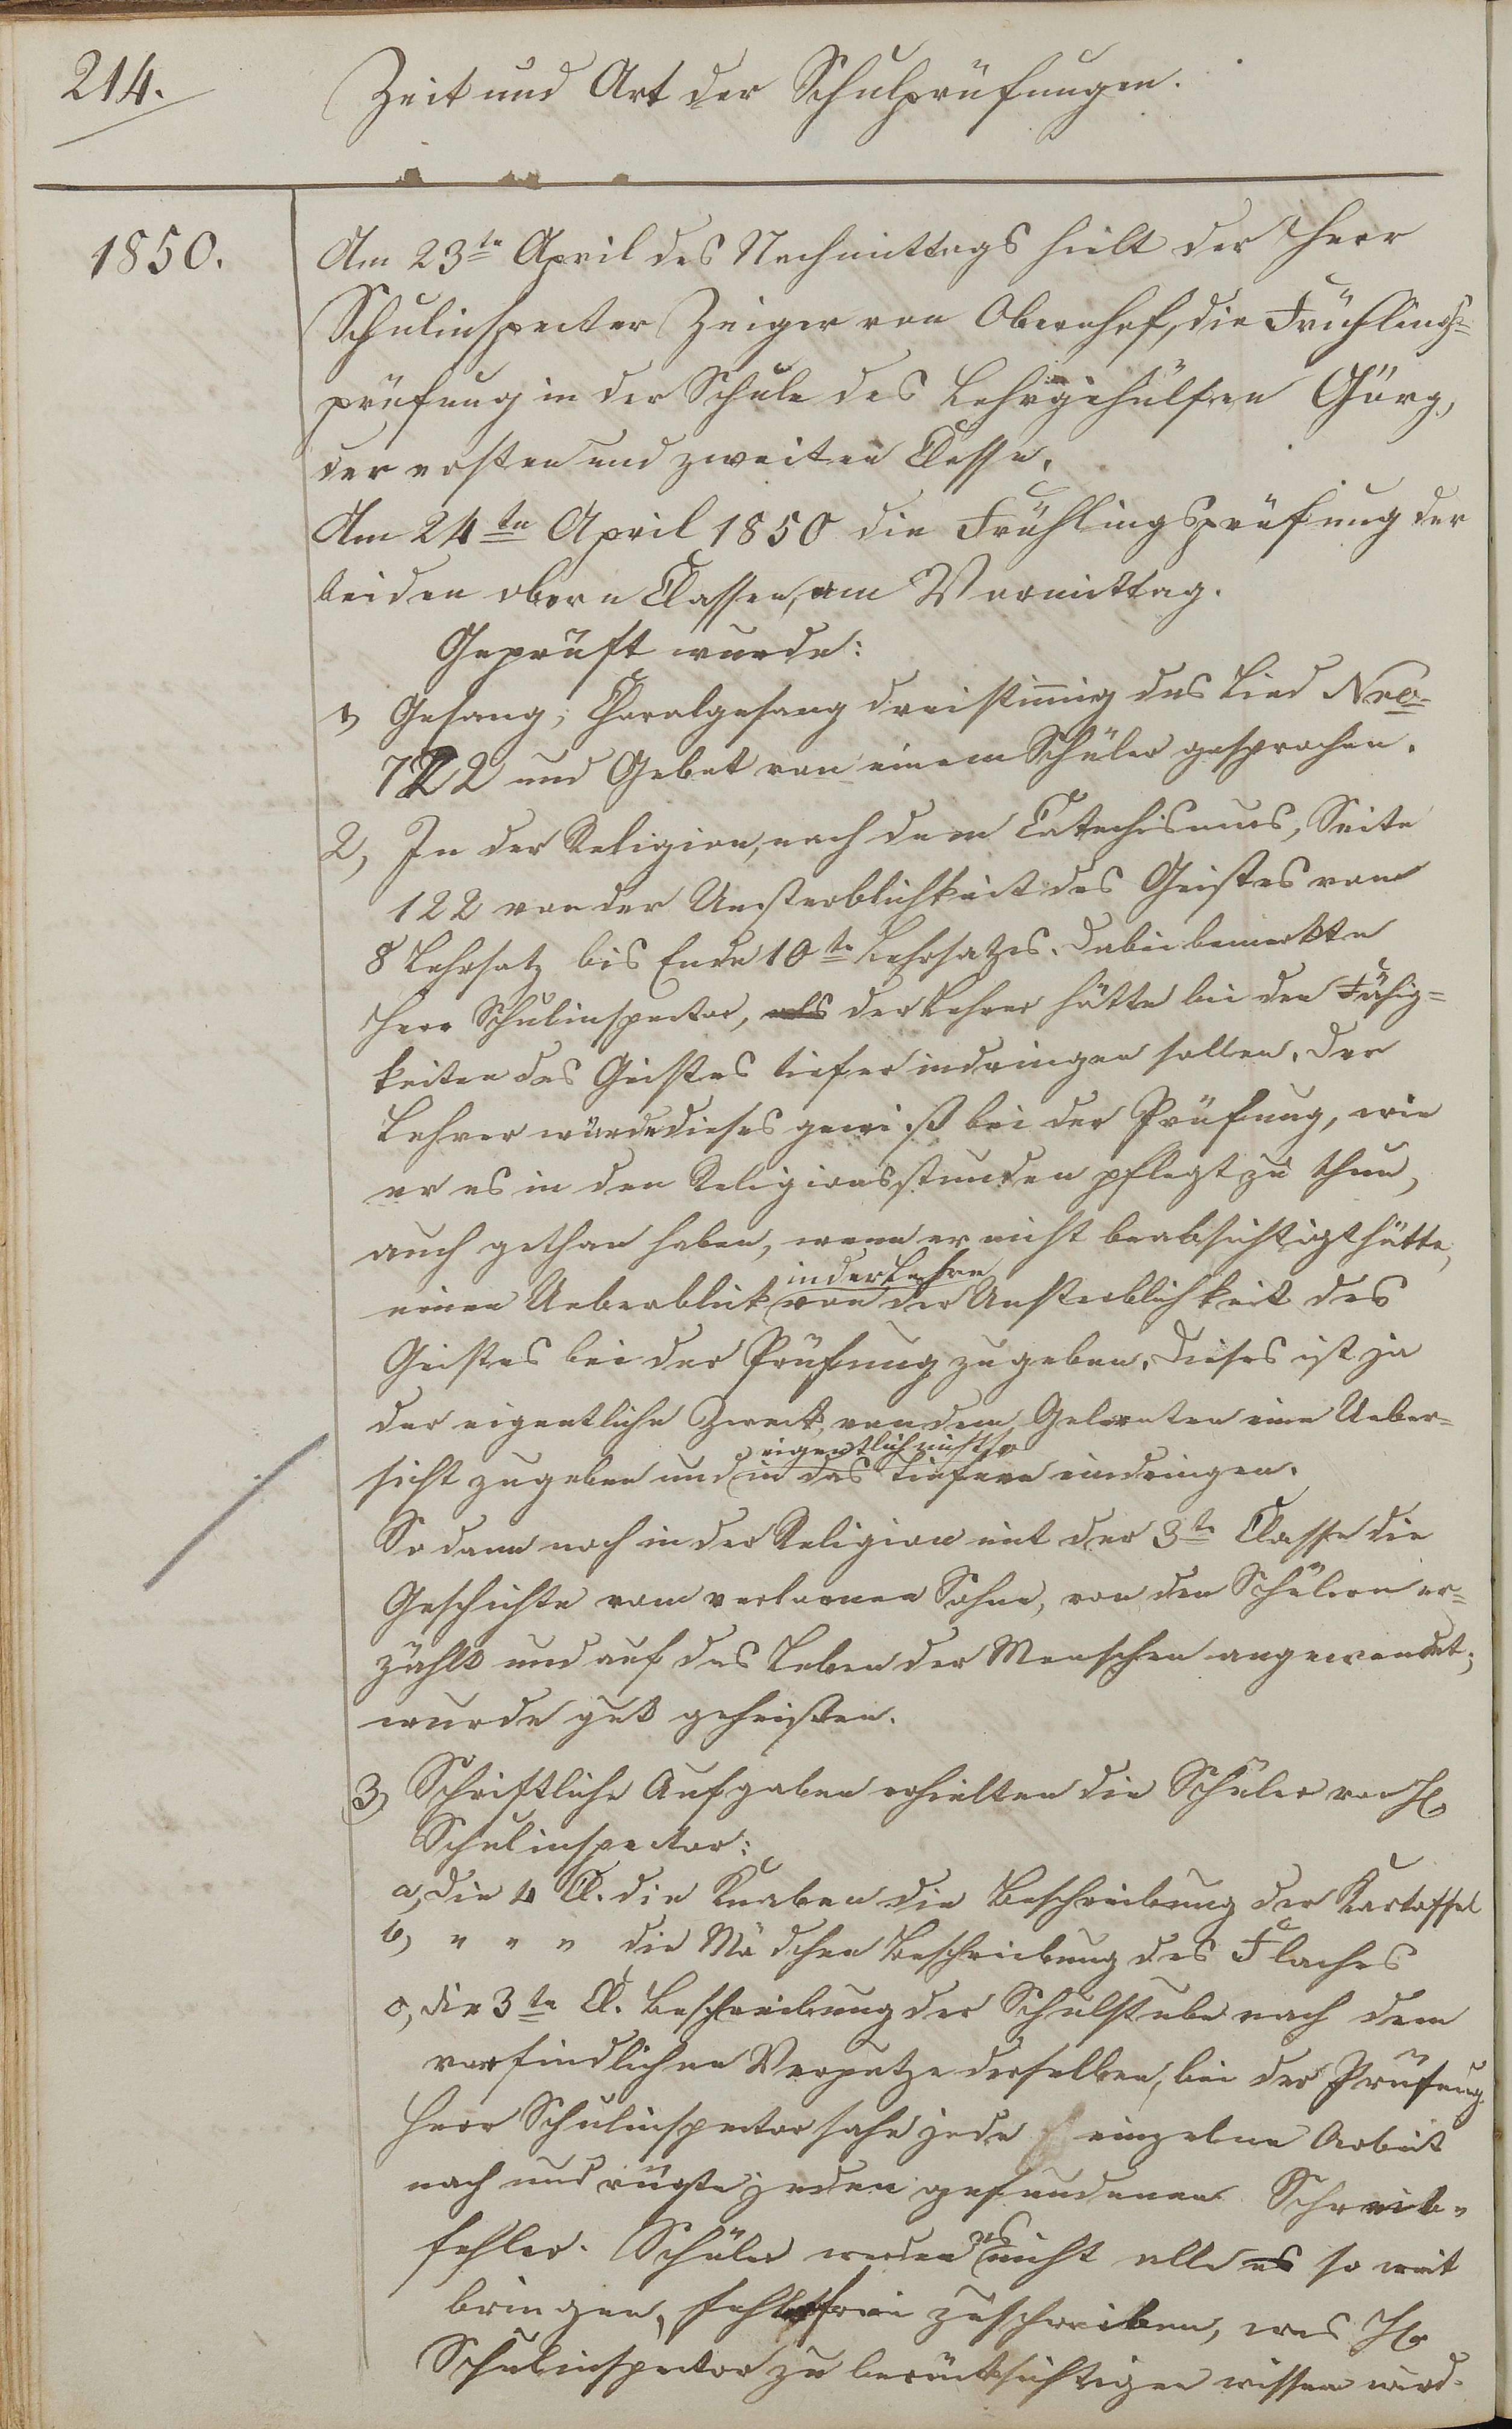 214.
Zeit und Art der Schulprüfungen.
1850.
Am 23te April des Nachmittags hielt der Herr
Schulinspector Zeiger von Obernhof, die Frühlings=
prüfung in der Schule des Lehrgehülfen Görg,
der ersten und zweiten Classe.
Am 24te April 1850 die Frühlingsprüfung der
beiden obern Classen, am Vormittag.
Geprüft wurde:
1) Gesang; Choralgesang dreistimig das Lied Nro
722 und Gebet von einem Schüler gesprochen.
2, In der Religion, nach dem Catechismus, Seite
122 von der Unsterblichkeit des Geistes vom
8 Lehrsatz bis Ende 10te Lehrsatzes. Dabei bemerkte
Herr Schulinspector, als der Lehrer hätte bei den Fähig=
keiten des Geistes tiefer indringen sollen. Der
Lehrer würde dieses gewiß bei der Prüfung, wie
er es in den Religionsstunden pflegt zu thun,
auch gethan haben, wenn er nicht beabsichtigt hätte,
in der Lehre
einen Ueberblick von der Unsterblichkeit des
Geistes bei der Prüfung zu geben. Dieses ist ja
der eigentliche Zweck, von dem Gelernten eine Ueber=
eigentlich nicht so
sicht zu geben und in das Tiefere eindringen.
So dann noch in der Religion mit der 3te Classe die
Geschichte vom verlornen Sohne, von den Schülern er=
zählt und auf das Leben der Menschen angewendet;
wurde gut geheißen.
3) Schriftliche Aufgaben erhielten die Schüler von H.
Schulinspector:
a, die 4 Cl. die Knaben die Beschreibung der Kartoffel
b, " " " die Mädchen Beschreibung des Flaches
c, die 3te Cl. Beschreibung der Schulstube nach dem
vorfindlichen Verputze derselben, bei der Prüfung.
Herr Schulinspector sahe jede einzelne Arbeit
nach und rügte jeden gefundenen Schreib=
es
fehler. Schüler werden nicht alle es so weit
bringen, fehlerfrei zu schreiben, was Hr
Schulinspector zu berücksichtigen wissen wird.